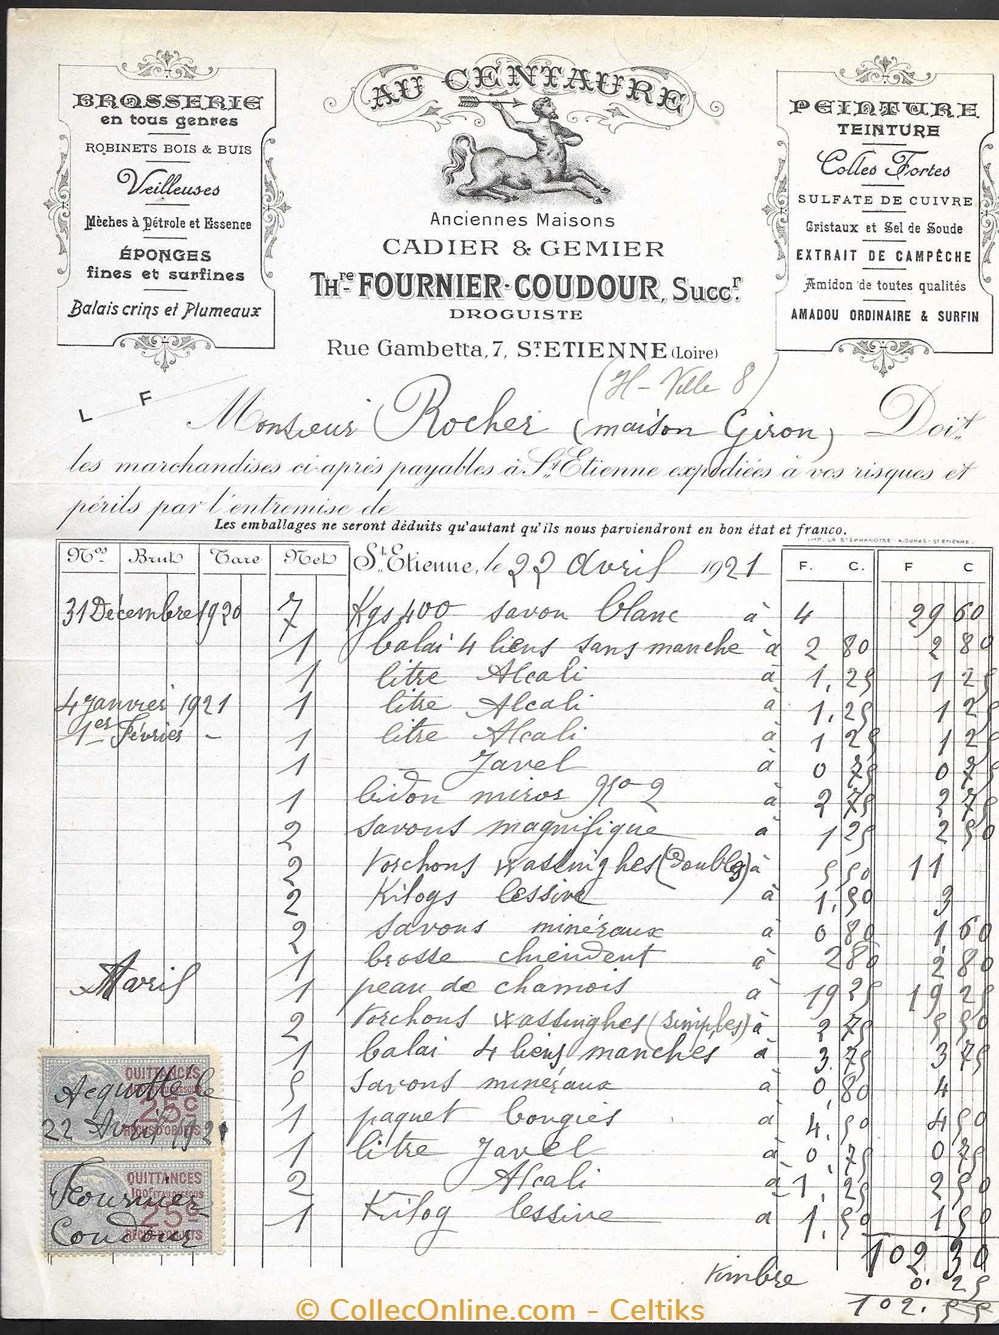 AU CENTAURE
BROSSERIE
en tous genres
ROBINETS BOIS & BUIS
Veilleuses
Mèches à Pétrole et Essence
ÉPONGES
fines et surfines
Balais crins et Plumeaux
Anciennes Maisons
CADIER & GEMIER
THre FOURNIER-COUDOUR, Succr.
DROGUISTE
Rue Gambetta, 7, ST ETIENNE (Loire)
PEINTURE
TEINTURE
Colles Fortes
SULFATE DE CUIVRE
Cristaux et Sel de Soude
EXTRAIT DE CAMPÊCHE
Amidon de toutes qualités
AMADOU ORDINAIRE & SURFIN
(H-Ville 8)
L F
Monsieur Rocher (maison Giron) Doit
les marchandises ci-après payables à St Etienne expédiées à vos risques et
périls par l'entremise de
Les emballages ne seront déduits qu'autant qu'ils nous parviendront en bon état et franco.
IMP. LA STÉPHANOISE - A. DUMAS - ST-ETIENNE.
Nos Brut Tare Net St Etienne, le 22 Avril 1921 F. C. F C
31 Décembre 1920 7 Kgs 400 savon blanc à 4 29 60
1 balai 4 liens sans manche à 2 80 2 80
1 litre Alcali à 1,25 1 25
4 Janvier 1921 1 litre Alcali à 1,25 1 25
1er Février - 1 litre Alcali à 1 25 1 25
1 - Javel à 0 75 0 75
1 bidon miror à 2 75 2 75
2 savons magnifique à 1 25 2 50
2 Torchons wassinghes (doubles) à 5 50 11
2 Kilogs lessive à 1,50 3
2 savons minéraux à 0 80 1 60
1 brosse chiendent à 2 80 2 80
Avril 1 peau de chamois à 19 25 19 25
2 Torchons wassinghes (simples) à 2 75 5 50
1 balai 4 liens manchés à 3.75 3 75
5 savons minéraux à 0,80 4
1 paquet bougies à 4,50 4 50
1 litre Javel à 0,75 0 75
2 Alcali à 1,25 2 50
1 Kilog lessive à 1,50 1 50
102 30
Timbre 0.25
102.55
QUITTANCES
25c
REÇUS D'OBJETS
Acquitté le
22 Avril 1921
QUITTANCES
25c
REÇUS D'OBJETS
Fournier-
Coudour
© CollecOnline.com - Celtiks